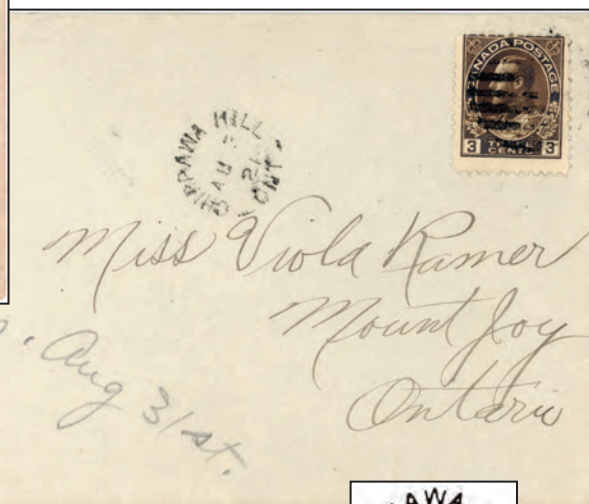 CANADA POSTAGE
3 THREE CENTS 3
CHIPPAWA HILL
AU
21
ONT
Miss Viola Ramer
Mount Joy
Ontario
Aug 31st.
AWA